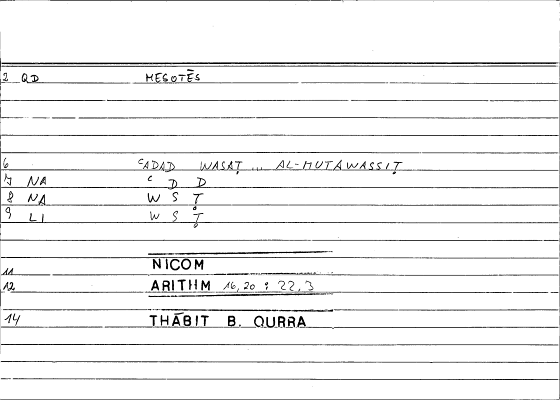 2 QD MESOTĒS
6 ᶜADAD WASAṬ ... AL-MUTAWASSIṬ
7 NA ᶜ D D
8 NA W S Ṭ
9 LI W S Ṭ
11 NICOM
12 ARITHM 16,20 : 22,3
14 THĀBIT B. QURRA